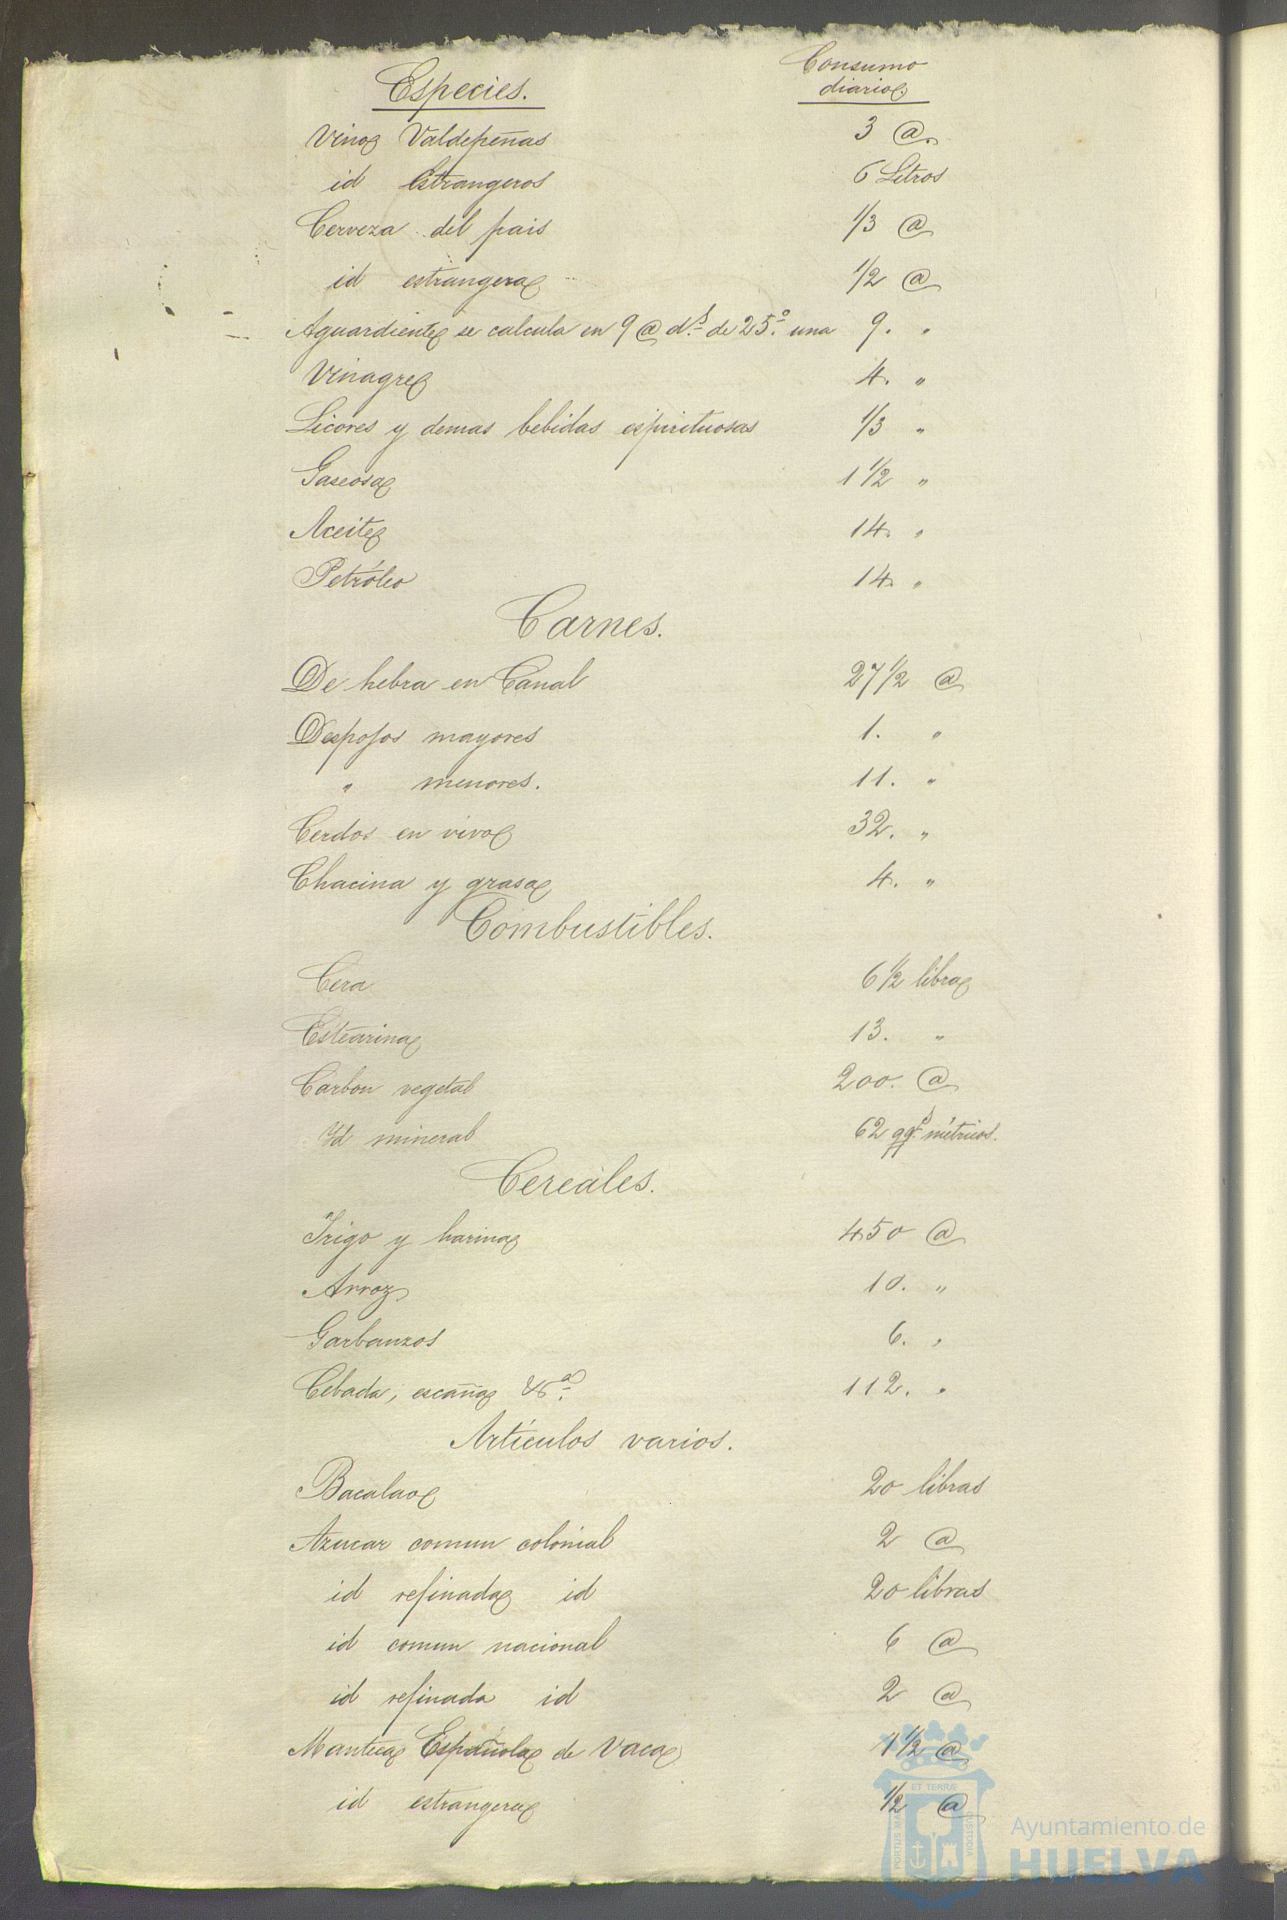 Especies. Consumo diario
Vino Valdepeñas 3 @.
id Estrangeros 6 Litros
Cerveza del pais 1/3 @
id estrangera 1/2 @
Aguardiente se calcula en 9 @ d.s de 25.º una 9. "
Vinagre 4. "
Licores y demas bebidas espirituosas 1/3 "
Gaseosa 1 1/2 "
Aceite 14. "
Petróleo 14. "
Carnes.
De hebra en Canal 27 1/2 @
Despojos mayores 1. "
" menores. 11. "
Cerdos en vivo 32. "
Chacina y grasa 4. "
Combustibles.
Cera 6 1/2 libra
Estearina 13. "
Carbon vegetal 200. @
Yd mineral 62 qq.s métricos.
Cereales.
Trigo y harina 450 @
Arroz 10. "
Garbanzos 6. "
Cebada, escaña &.a 112. "
Artículos varios.
Bacalao 20 libras
Azucar comun colonial 2 @
id refinada id 20 libras
id comun nacional 6 @
id refinada id 2 @
Manteca Española de Vaca 1 1/2 @
id estrangera 1/2 @
ET TERRÆ
PORTUS MA CUSTODIA
Ayuntamiento de
HUELVA